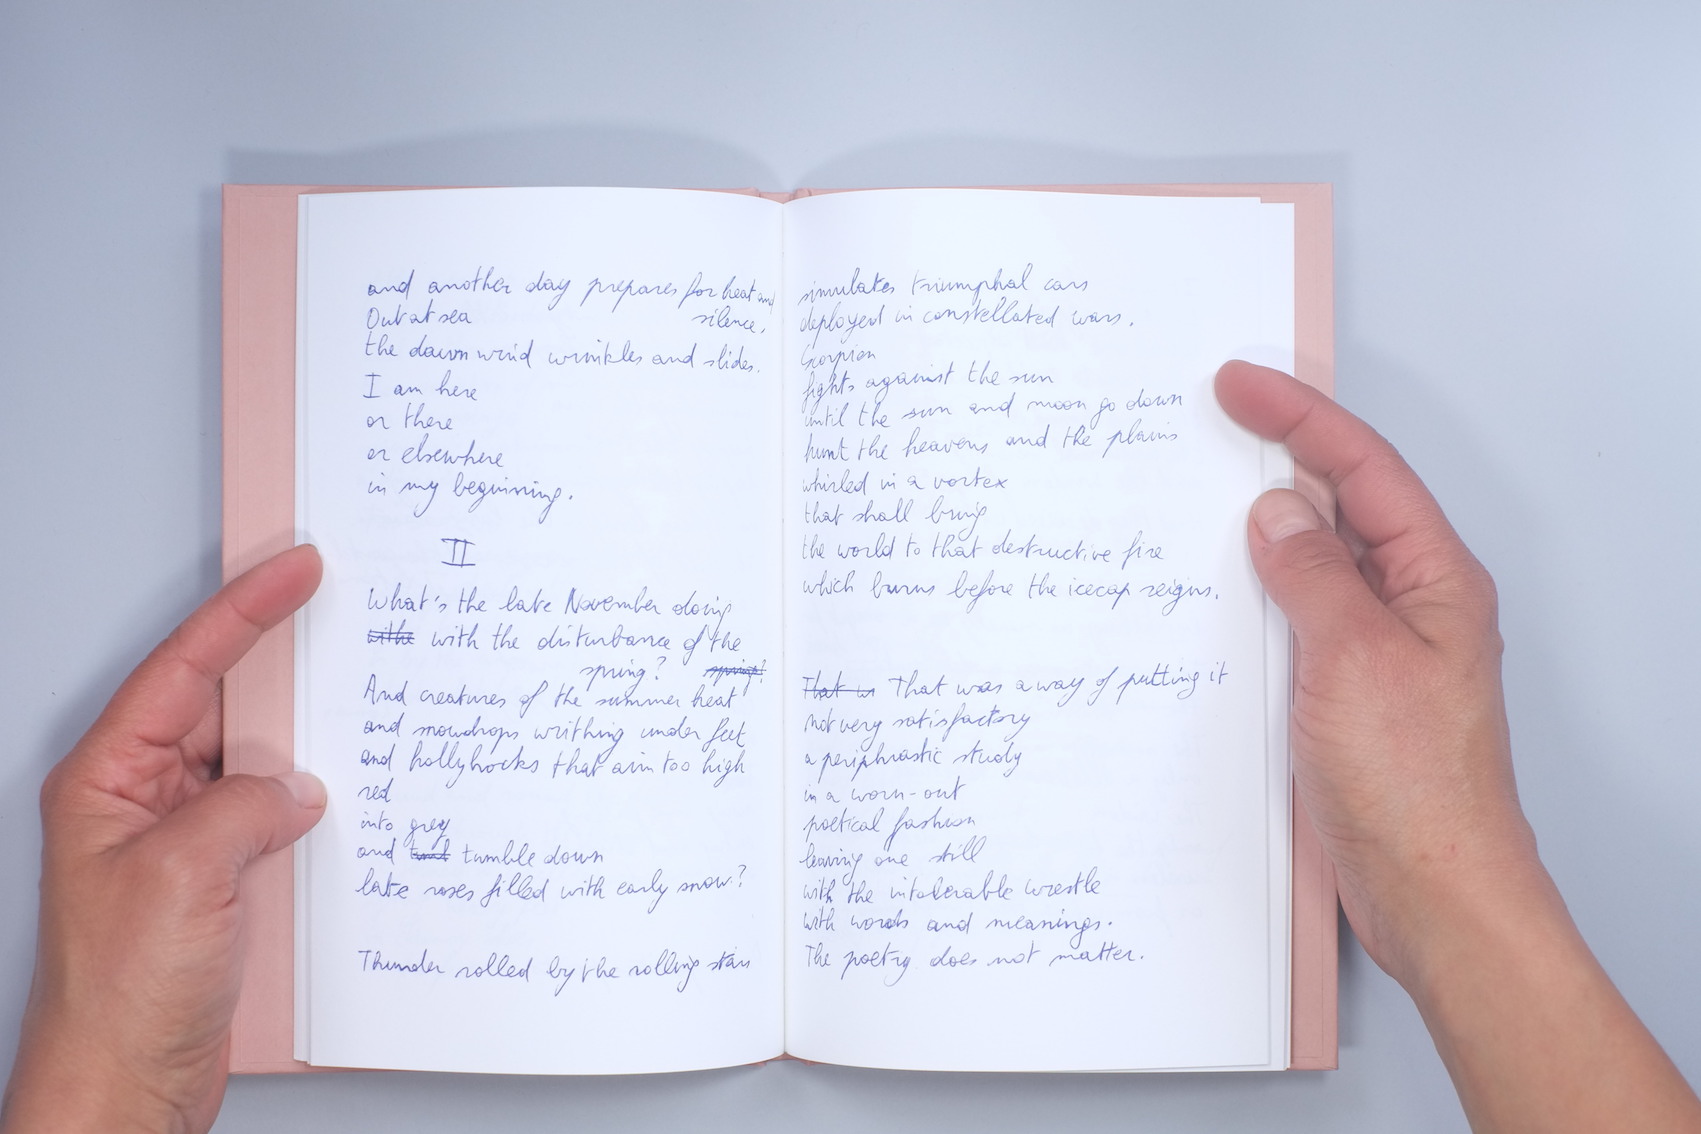 and another day prepares for heat and
Out at sea silence.
the dawn wind wrinkles and slides.
I am here
or there
or elsewhere
in my beginning.
II
What's the late November doing
withe with the disturbance of the
spring? spring?
And creatures of the summer heat
and snowdrops writhing under feet
and hollyhocks that aim too high
red
into grey
and tumble down
late roses filled with early snow?
Thunder rolled by the rolling stars
simulates triumphal cars
deployed in constellated wars.
Scorpion
fights against the sun
until the sun and moon go down
hunt the heavens and the plains
whirled in a vortex
that shall bring
the world to that destructive fire
which burns before the icecap reigns.
That is That was a way of putting it
not very satisfactory
a periphrastic study
in a worn-out
poetical fashion
leaving one still
with the intolerable wrestle
with words and meanings.
The poetry does not matter.